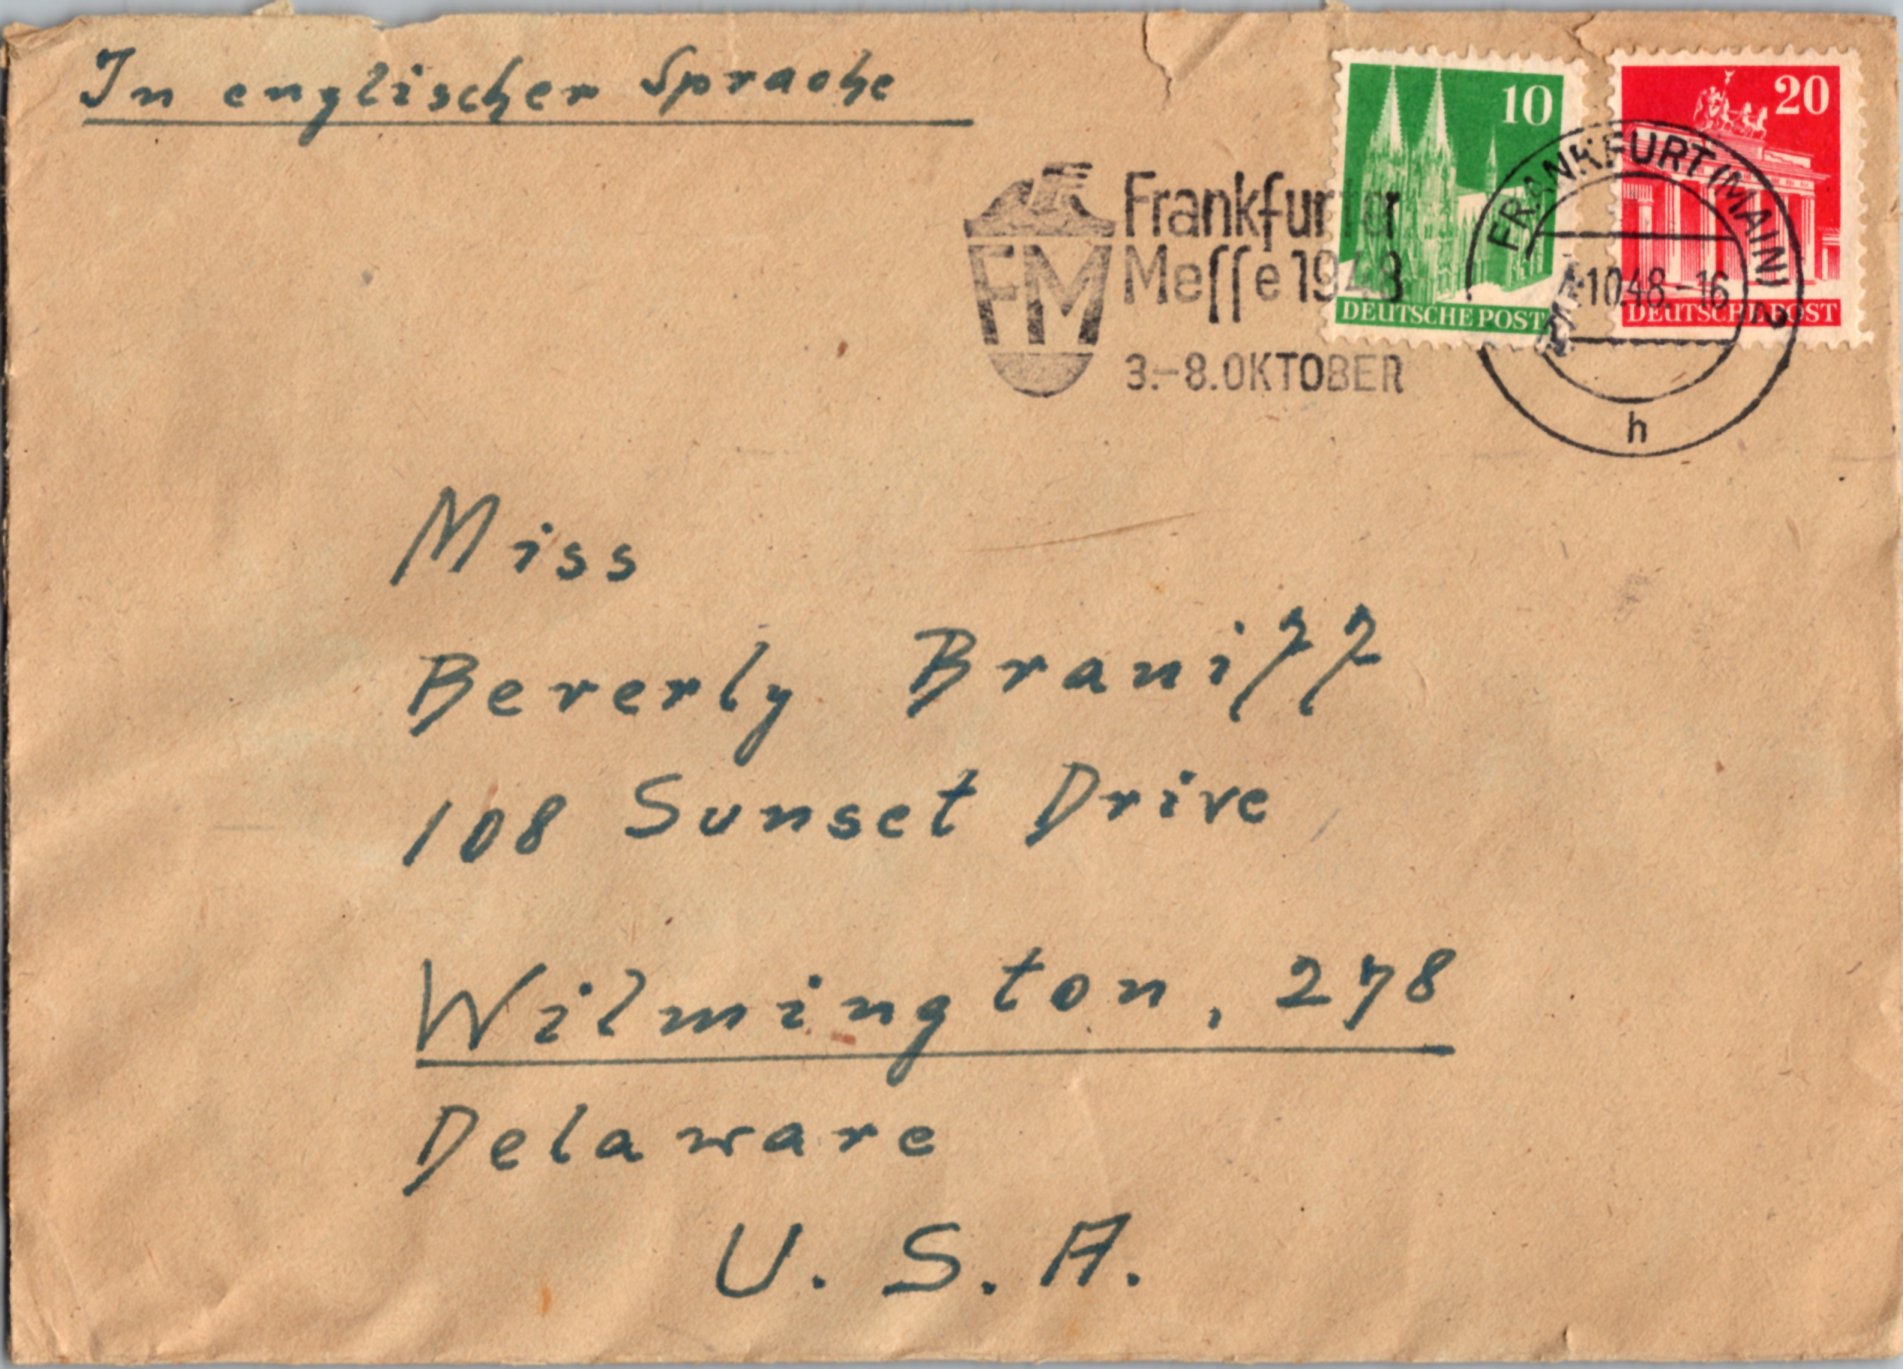 In englischer Sprache
10
DEUTSCHE POST
20
DEUTSCHE POST
FM
Frankfurter
Messe 1948
3.-8.OKTOBER
FRANKFURT (MAIN) 2
10.48.-16
h
Miss
Beverly Braniff
108 Sunset Drive
Wilmington, 278
Delaware
U. S. A.